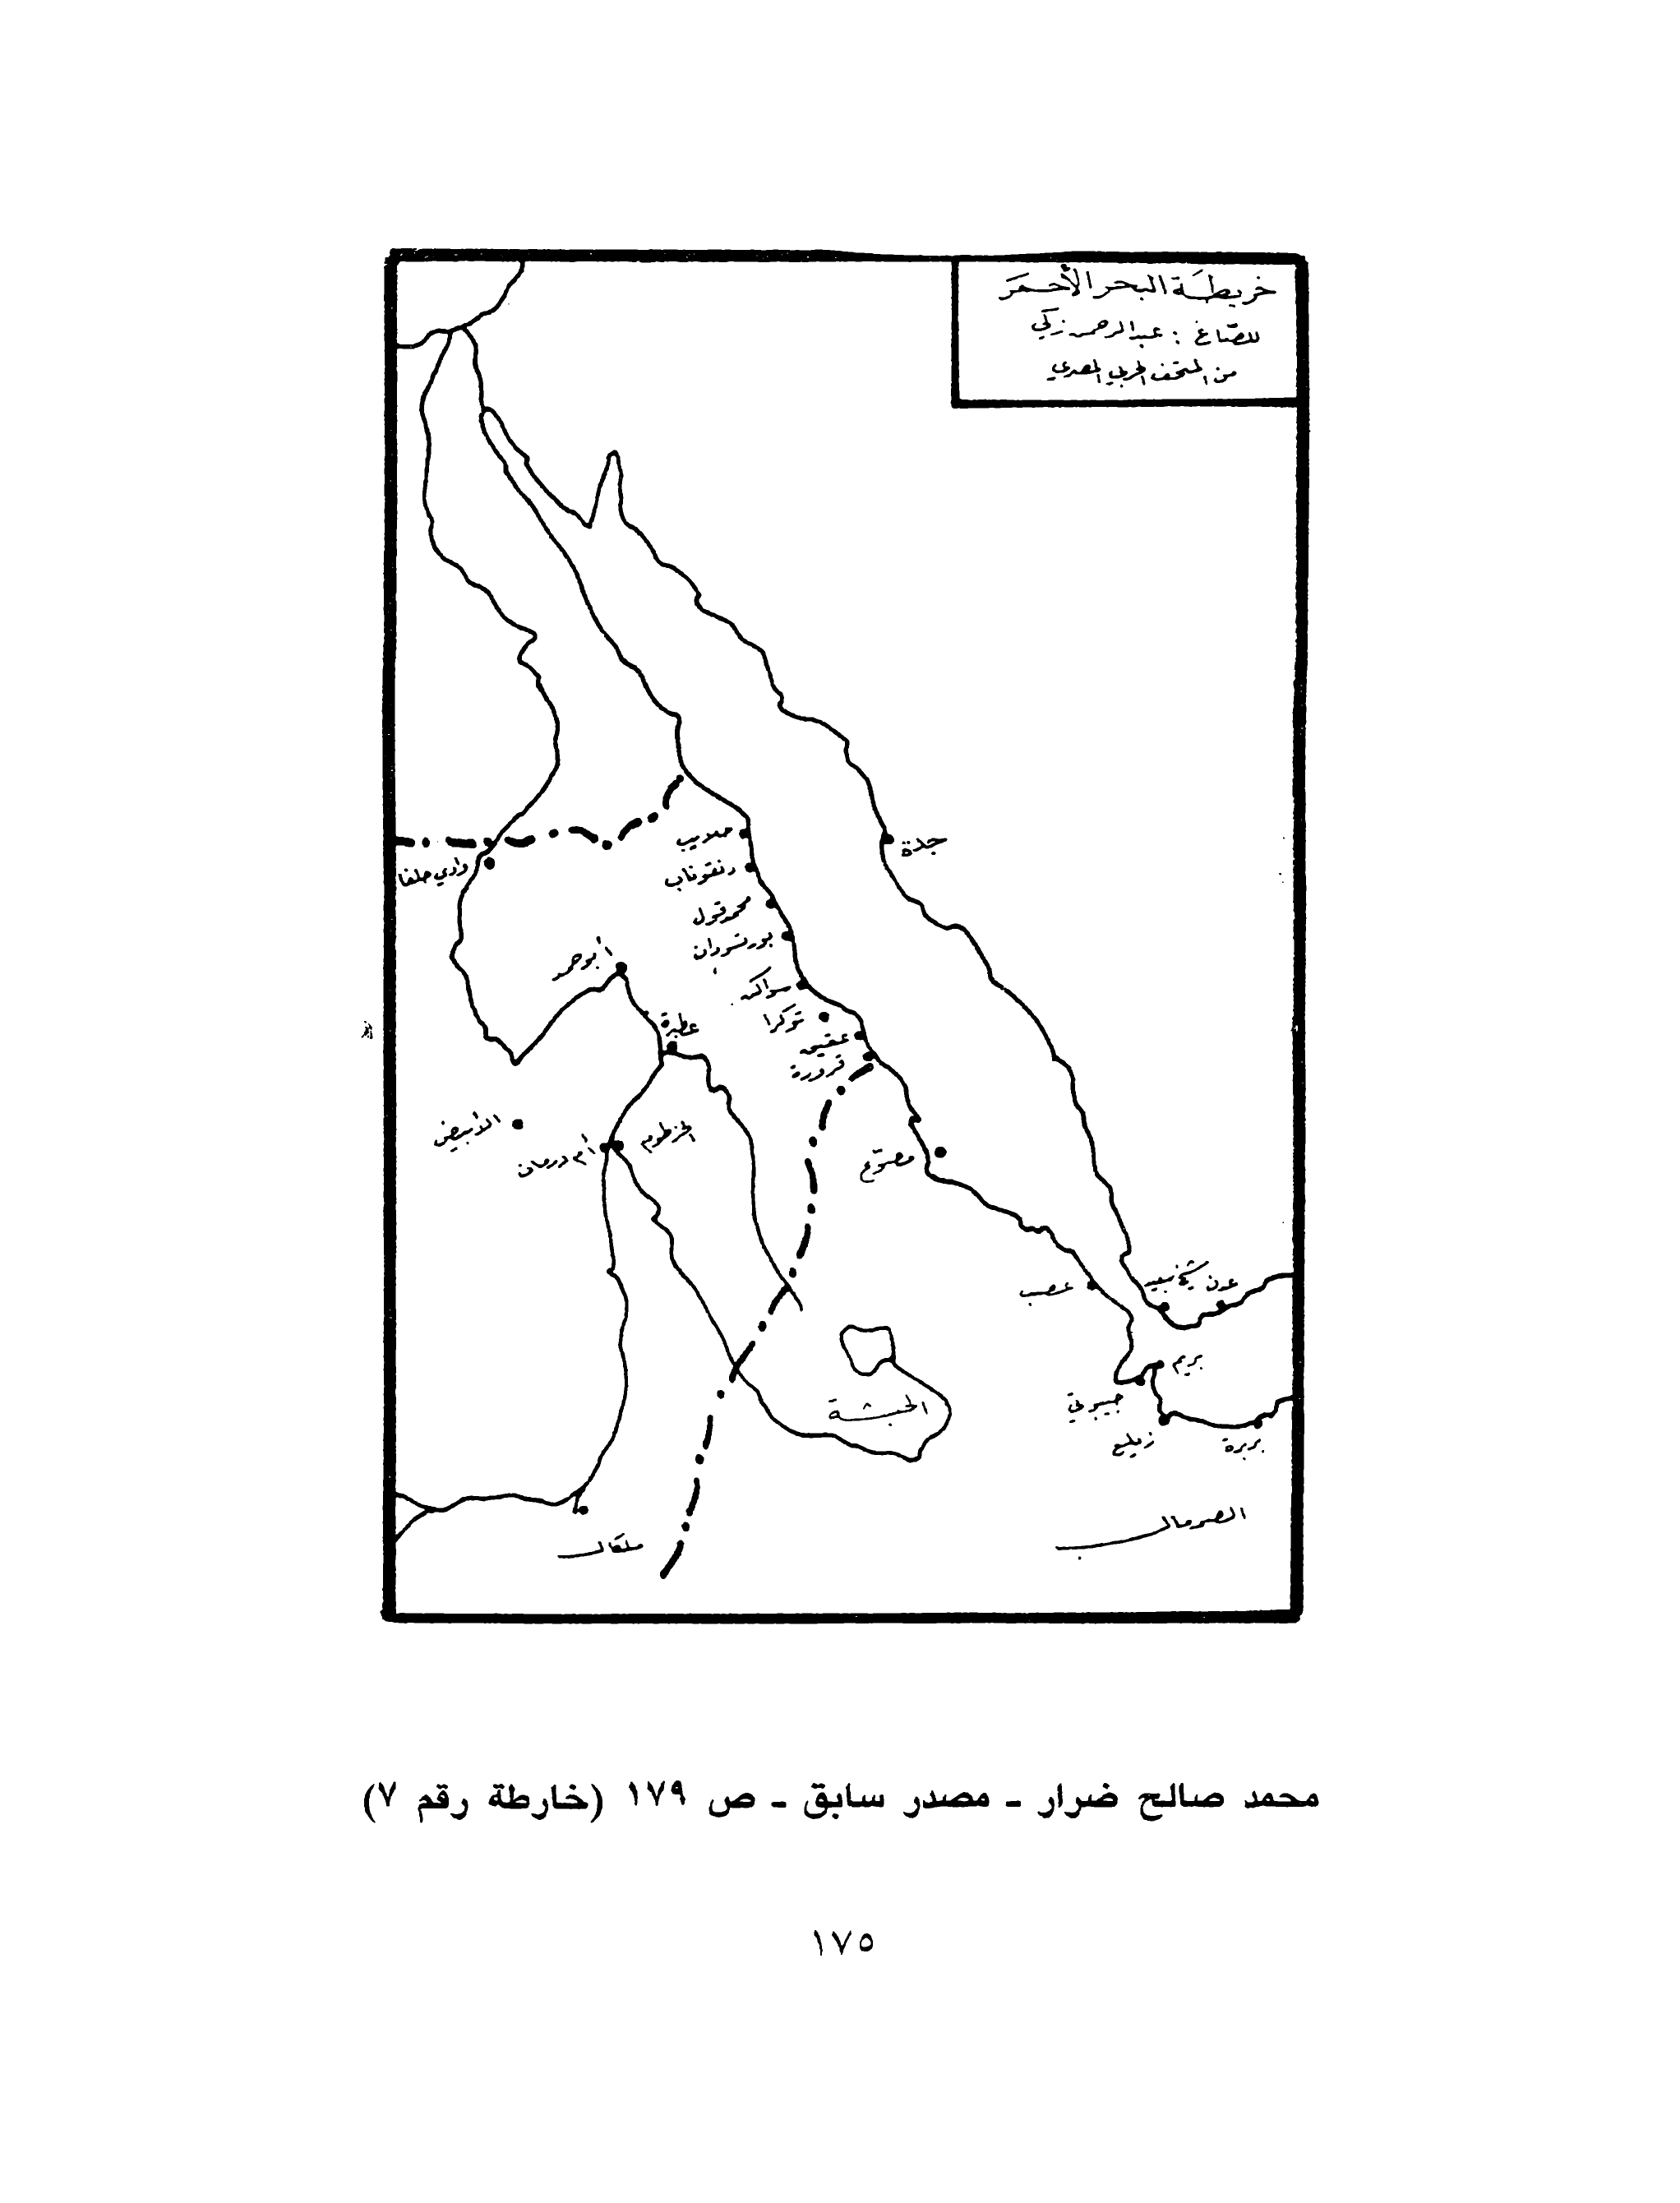 خريطة البحر الأحمر
للصّاغ : عبد الرحمن زكي
من المتحف الحربي المصري
حلايب
جدة
وادي حلفا
دنقوناب
محمد قول
بورتسودان
أبو حمد
سواكن
توكرا
عطبرة
عقيق
قرورة
الأبيض
الخرطوم
أم درمان
مصوّع
عدن
شيخ سعيد
عصب
بريم
جيبوتي
الحبشة
زيلع
بربرة
الصومال
ملكال
محمد صالح ضرار ـ مصدر سابق ـ ص ١٧٩ (خارطة رقم ٧)
١٧٥